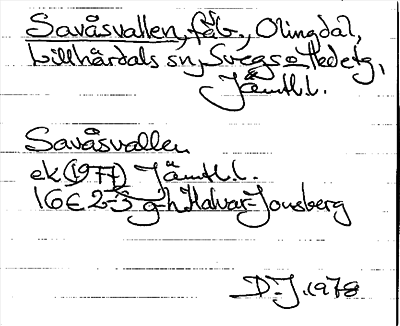 Savåsvallen, fäb., Olingdal,
Lillhärdals sn, Svegs o Hedetg,
Jämtl.l.
Savåsvallen
ek (1977) Jämtl.l.
16E 2-3 g-h Halvar Jonsberg
D-J. 1978